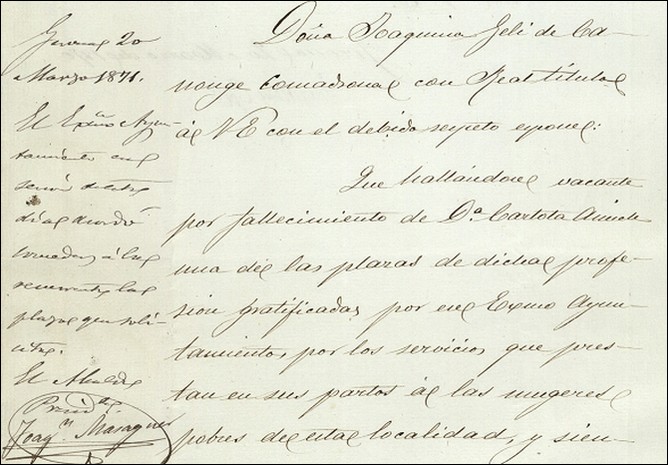 Gerona 20
Marzo 1871.
El Exmo Ayun-
tamiento en
sesion de este
dia acordó
conceder á la
recurrente la
plaza que soli-
cita.
El Alcalde
Presidte
Joaqn Masaguer
Doña Joaquina Geli de Ca-
nonge comadrona con Real titulo
á VE con el debido respeto espone:
Que hallandose vacante
por fallecimiento de Da. Carlota
una de las plazas de dicha profe-
sion gratificadas por ese Exmo Ayun-
tamiento, por los servicios que pres-
tan en sus partos á las mugeres
pobres de esta localidad, y sien-